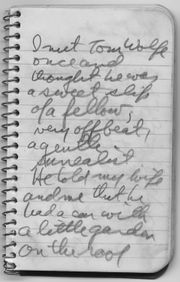 I met Tom Wolfe
once and
thought he was
a sweet slip
of a fellow,
very offbeat,
a gentle
surrealist
He told my wife
and me that he
had a car with
a little garden
on the roof